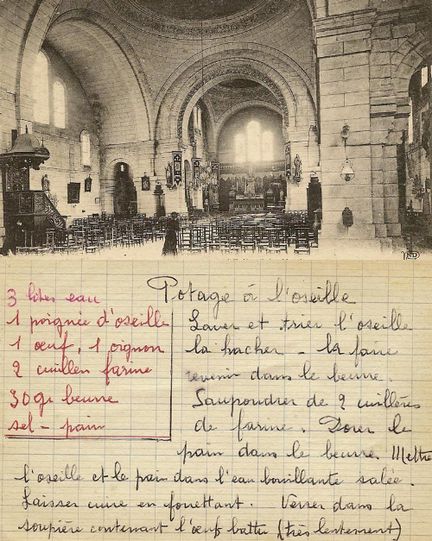 ND
Potage à l'oseille
3 litres eau
1 poignée d'oseille
1 œuf, 1 oignon
2 cuillers farine
30gr beurre
sel - pain
Laver et trier l'oseille
la hacher - la faire
revenir dans le beurre.
Saupoudrer de 2 cuillères
de farine. Dorer le
pain dans le beurre. Mettre
l'oseille et le pain dans l'eau bouillante salée.
Laisser cuire en fouettant. Verser dans la
soupière contenant l'œuf battu (très lentement)